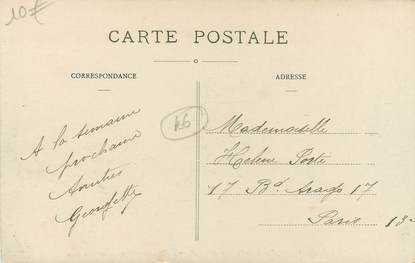 10€
CARTE POSTALE
CORRESPONDANCE
ADRESSE
A la semaine
prochaine
Amitiés
Georgette
Mademoiselle
Hélène Porte
17 Bd. Arago 17
Paris 13